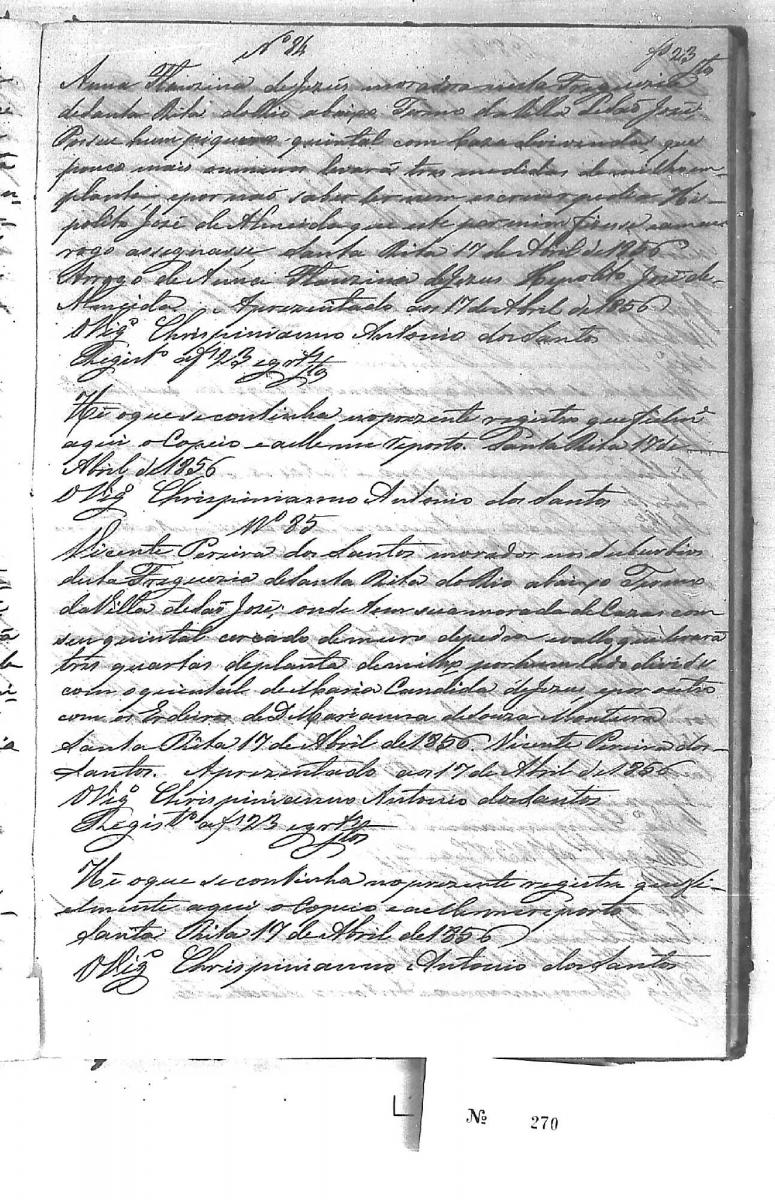 Nº 84 f 23
Anna Flauzina de Jezús moradora nesta Freguezia
de Santa Rita do Rio abaixo Termo da Villa de Saõ José,
Possue hum piqueno quintal com caza de vivenda, que
pouco mais ou menos levará tres medidas de milho em
planta, e por naõ saber ler nem escrever pedia Hi-
polito José de Almeida que este por mim fizesse e a meu
rogo assignasse Santa Rita 17 de Abril de 1856
Arrogo de Anna Flauzina de Jezus Hepolito José de
Almeida, Aprezentado aos 17 de Abril de 1856
O Vigº Chrispinianno Antonio dos Santos
Registº af 23 e grtº
Hé o que se continha no prezente registro que fielme
aqui o Copeio e a elle me reporto. Santa Rita 17 de
Abril de 1856
O Vigº Chrispinianno Antonio dos Santos
Nº 85
Vicente Pereira dos Santos morador nos suburbios
desta Freguezia de Santa Rita do Rio abaixo Termo
da Villa de Saõ José, onde tem sua morada de Cazas com
seu quintal cercado de muro de pedra e vallo que levará
tres quartas de planta de milho por hum lado divide
com o quintal de Maria Candida de Jezus e por outro
com os Erdeiros de D Marianna de Souza Monteira
Santa Rita 17 de Abril de 1856 Vicente Pereira dos
Santos. Aprezentado aos 17 de Abril de 1856
O Vigº Chrispinianno Antonio dos Santos
Registº af 23 e grtº
Hé o que se continha no prezente registro que fi-
elmente aqui o Copeio e a elle me reporto
Santa Rita 17 de Abril de 1856
O Vigº Chrispinianno Antonio dos Santos
Nº 270